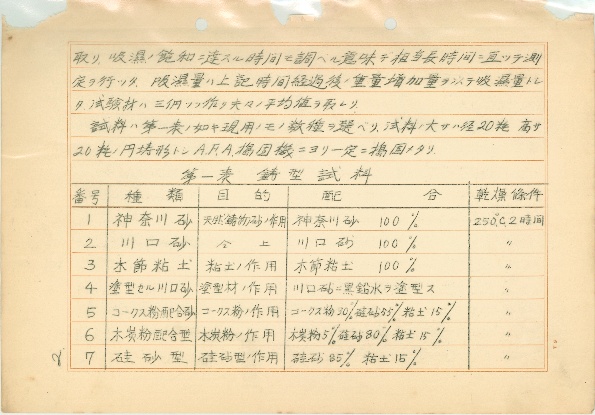 取リ、吸濕ノ飽和ニ達スル時間モ調ベル意味デ相当長時間ニ亘ツテ測
定ヲ行ツタ. 吸濕量ハ上記時間経過後ノ重量増加量ヲ以テ吸濕量トシ
タ. 試験材ハ三個ヅツ作リ夫々ノ平均値ヲ取レリ
試料ハ第一表ノ如キ現用ノモノ数種ヲ選ベリ. 試料ノ大サハ径20粍 高サ
20粍ノ円墻形トシ A.F.A.搗固機ニヨリ一定ニ搗固メタリ
第一表 鋳型試料
番号 種類 目的 配合 乾燥條件
1 神奈川砂 天然鋳物砂ノ作用 神奈川砂 100% 250℃, 2時間
2 川口砂 仝上 川口砂 100% 〃
3 木節粘土 粘土ノ作用 木節粘土 100% 〃
4 塗型セル川口砂 塗型材ノ作用 川口砂ニ黒鉛水ヲ塗型ス 〃
5 コークス粉配合砂 コークス粉ノ作用 コークス粉30%硅砂55%粘土15% 〃
6 木炭粉配合型 木炭粉ノ作用 木炭粉5%硅砂80%粘土15% 〃
7 硅砂型 硅砂型ノ作用 硅砂85% 粘土15% 〃
2